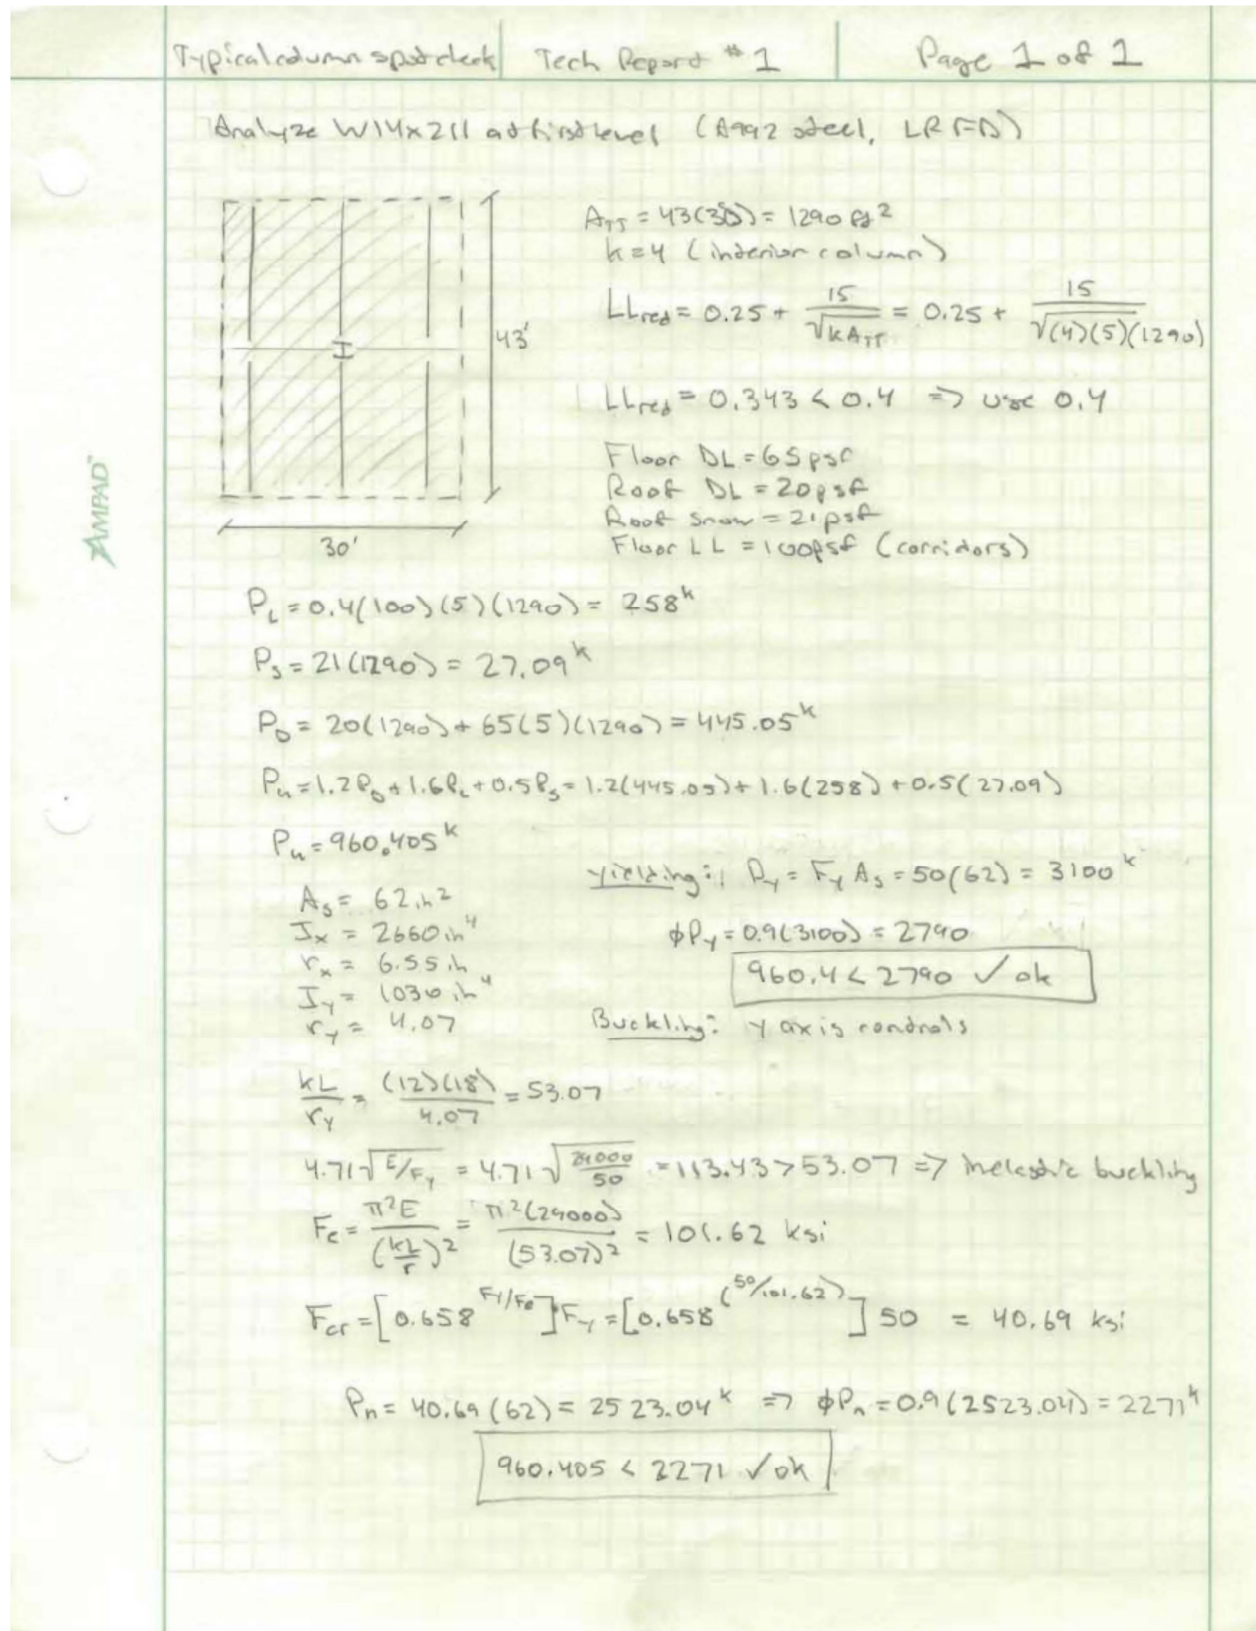 Typical column spot check | Tech Report #1 | Page 1 of 1
Analyze W14x211 at first level (A992 steel, LRFD)
43'
30'
A_TT = 43(30) = 1290 ft²
k=4 (interior column)
LLred = 0.25 + 15/√(kA_TT) = 0.25 + 15/√((4)(5)(1290))
LLred = 0.343 < 0.4 => use 0.4
Floor DL = 65 psf
Roof DL = 20 psf
Roof Snow = 21 psf
Floor LL = 100psf (corridors)
AMPAD
P_L = 0.4(100)(5)(1290) = 258^k
P_S = 21(1290) = 27.09^k
P_D = 20(1290) + 65(5)(1290) = 445.05^k
P_u = 1.2P_D + 1.6P_L + 0.5P_S = 1.2(445.05) + 1.6(258) + 0.5(27.09)
P_u = 960.405^k
A_s = 62 in²
I_x = 2660 in⁴
r_x = 6.55 in
I_y = 1030 in⁴
r_y = 4.07
Yielding: P_y = F_y A_s = 50(62) = 3100^k
ϕP_y = 0.9(3100) = 2790
960.4 < 2790 ✓ ok
Buckling: y axis controls
kL/r_y = (12)(18)/4.07 = 53.07
4.71√(E/F_y) = 4.71√(29000/50) = 113.43 > 53.07 => inelastic buckling
F_e = π²E/(kL/r)² = π²(29000)/(53.07)² = 101.62 ksi
F_cr = [0.658^(F_y/F_e)]F_y = [0.658^(50/101.62)] 50 = 40.69 ksi
P_n = 40.69(62) = 2523.04^k => ϕP_n = 0.9(2523.04) = 2271^k
960.405 < 2271 ✓ ok